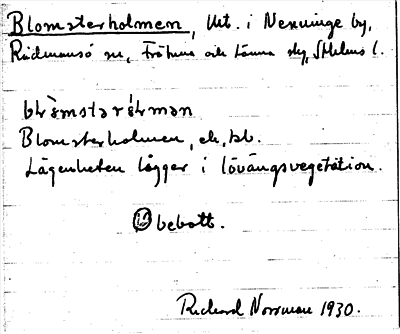 Blomsterholmen, lht. i Nenninge by,
Rådmansö sn, Frötuna och Länna skg, Sthlms l.
Blomsterholmen, ek, bl.
Lägenheten ligger i lövängsvegetation.
bebott.
Rickard Norrman 1930.